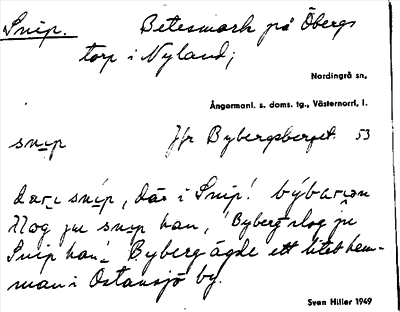 Snip. Betesmark på Öbergs
torp i Nyland;
Nordingrå sn,
Ångermanl. s. doms. tg., Västernorrl. l.
snip Jfr Bybergsberget. 53
dar i snip, där i Snip! býbærjan
slog ju snip han, 'Byberg slog ju
Snip han'. Byberg ägde ett litet hem-
man i Östansjö by.
Sven Hiller 1949